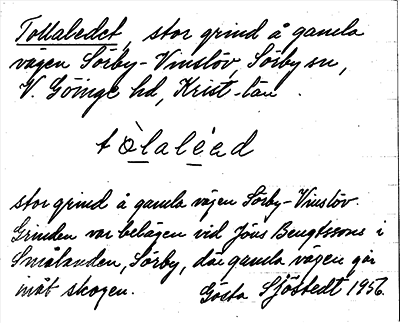 Tollaledet, stor grind å gamla
vägen Sörby-Vinslöv, Sörby sn,
V. Göinge hd, Krist-län.
tòlalèad
stor grind å gamla vägen Sörby-Vinslöv.
Grinden var belägen vid Jöns Bengtssons i
Smålanden, Sörby, där gamla vägen går
inåt skogen. Gösta Sjöstedt 1956.